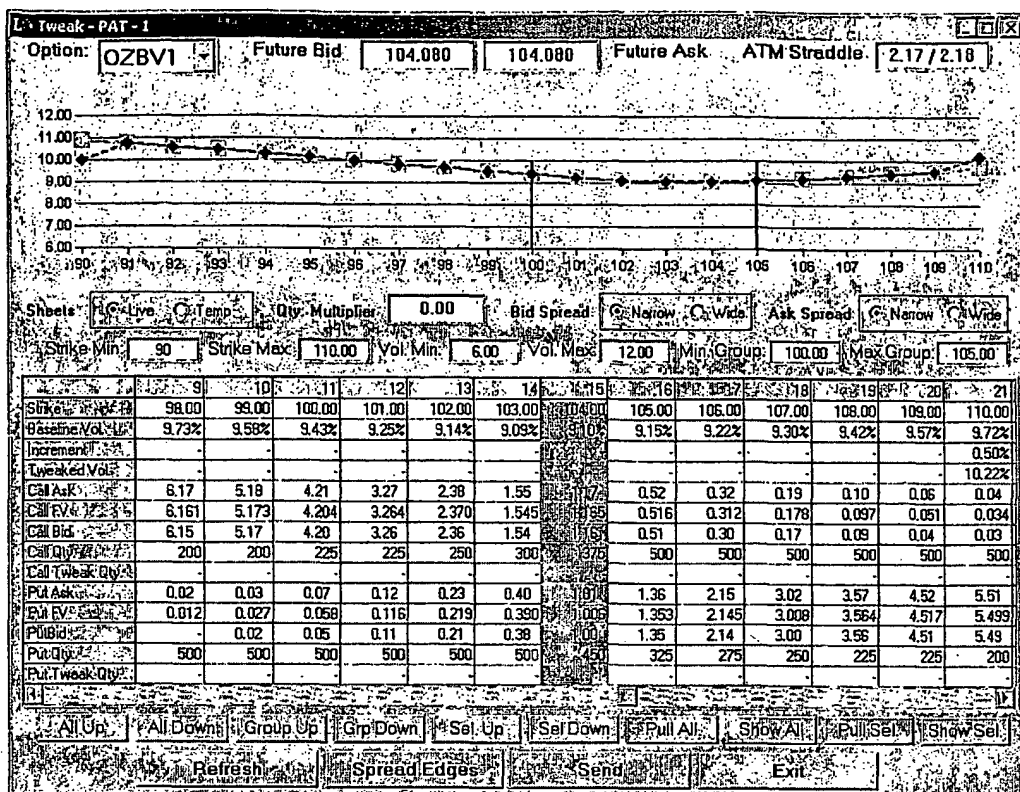 Tweak - PAT - 1
Option: OZBV1 Future Bid 104.080 104.080 Future Ask ATM Straddle 2.17 / 2.18
12.00
11.00
10.00
9.00
8.00
7.00
6.00
90 91 92 93 94 95 96 97 98 99 100 101 102 103 104 105 106 107 108 109 110
Sheets Live Temp Qty. Multiplier 0.00 Bid Spread Narrow Wide Ask Spread Narrow Wide
Strike Min 90 Strike Max 110.00 Vol. Min. 6.00 Vol. Max 12.00 Min. Group: 100.00 Max Group: 105.00
9 10 11 12 13 14 15 16 17 18 19 20 21
Strike 98.00 99.00 100.00 101.00 102.00 103.00 104.00 105.00 106.00 107.00 108.00 109.00 110.00
Baseline Vol. 9.73% 9.58% 9.43% 9.25% 9.14% 9.09% 9.15% 9.22% 9.30% 9.42% 9.57% 9.72%
Increment - - - - - - - - - - - 0.50%
Tweaked Vol. - - - - - - - - - - - 10.22%
Call Ask 6.17 5.18 4.21 3.27 2.38 1.55 0.52 0.32 0.19 0.10 0.06 0.04
Call F.V. 6.161 5.173 4.204 3.264 2.370 1.545 0.516 0.312 0.178 0.097 0.051 0.034
Call Bid 6.15 5.17 4.20 3.26 2.36 1.54 0.51 0.30 0.17 0.09 0.04 0.03
Call Qty 200 200 225 225 250 300 375 500 500 500 500 500 500
Call Tweak Qty. - - - - - - - - - - - -
Put Ask 0.02 0.03 0.07 0.12 0.23 0.40 1.36 2.15 3.02 3.57 4.52 5.51
Put F.V. 0.012 0.027 0.058 0.116 0.219 0.390 1.353 2.145 3.008 3.564 4.517 5.499
Put Bid - 0.02 0.05 0.11 0.21 0.38 1.35 2.14 3.00 3.56 4.51 5.49
Put Qty 500 500 500 500 500 500 450 325 275 250 225 225 200
Put Tweak Qty. - - - - - - - - - - - -
All Up All Down Group Up Grp Down Sel. Up Sel Down Pull All Show All Pull Sel. Show Sel.
Refresh Spread Edges Send Exit